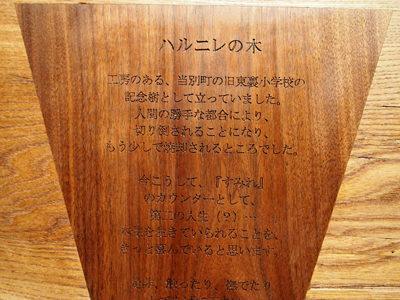 ハルニレの木
工房のある、当別町の旧東裏小学校の
記念樹として立っていました。
人間の勝手な都合により、
切り倒されることになり、
もう少しで焼却されるところでした。
今こうして、『すみれ』
のカウンターとして、
第二の人生（？）…
を生きていられることを、
きっと喜んでいると思います。
触ったり、撫でたり